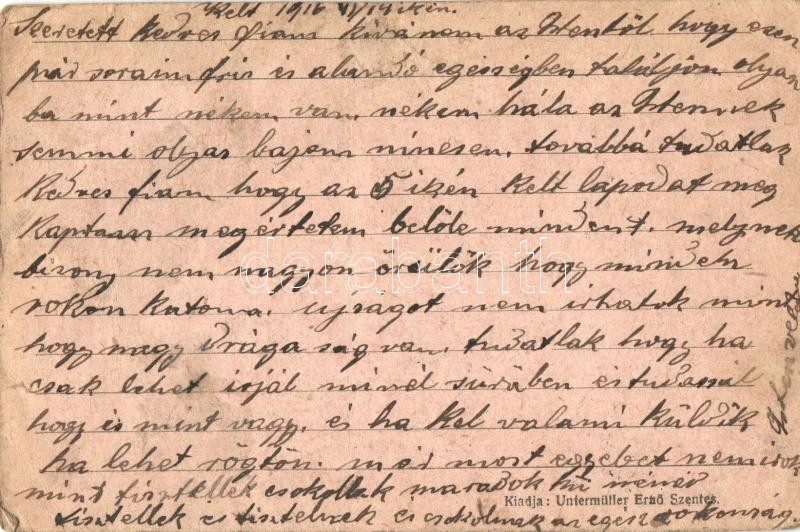 Kelt 1916 VI/14 ikén.
Szeretett kedves fiam kivánom az Istentöl hogy ezen
pár soraim fris és álandó egésségben találjon olyan
ba mint nékem van. nékem hála az Istennek
semmi olyas bajom nincsen. továbbá tudatlak
kedves fiam hogy az 5 ikén kelt lapodat meg
kaptam megértetem belöle mindent. melynek
bizony nem nagyon örülök hogy minden
rokon katona. ujságot nem irhatok mint
hogy nagy drágaság van. tudatlak hogy ha
csak lehet irjál minél sürüben és tudassál
hogy is mint vagy. és ha kel valami küldök
ha lehet rögtön. már most egyebet nem irok
mint tisztellek csokollak maradok hü
tisztellek és tisztelnek és csokolnak az egész rokonság.
Isten veled
Kiadja: Untermüller Ernő Szentes.
darabanth